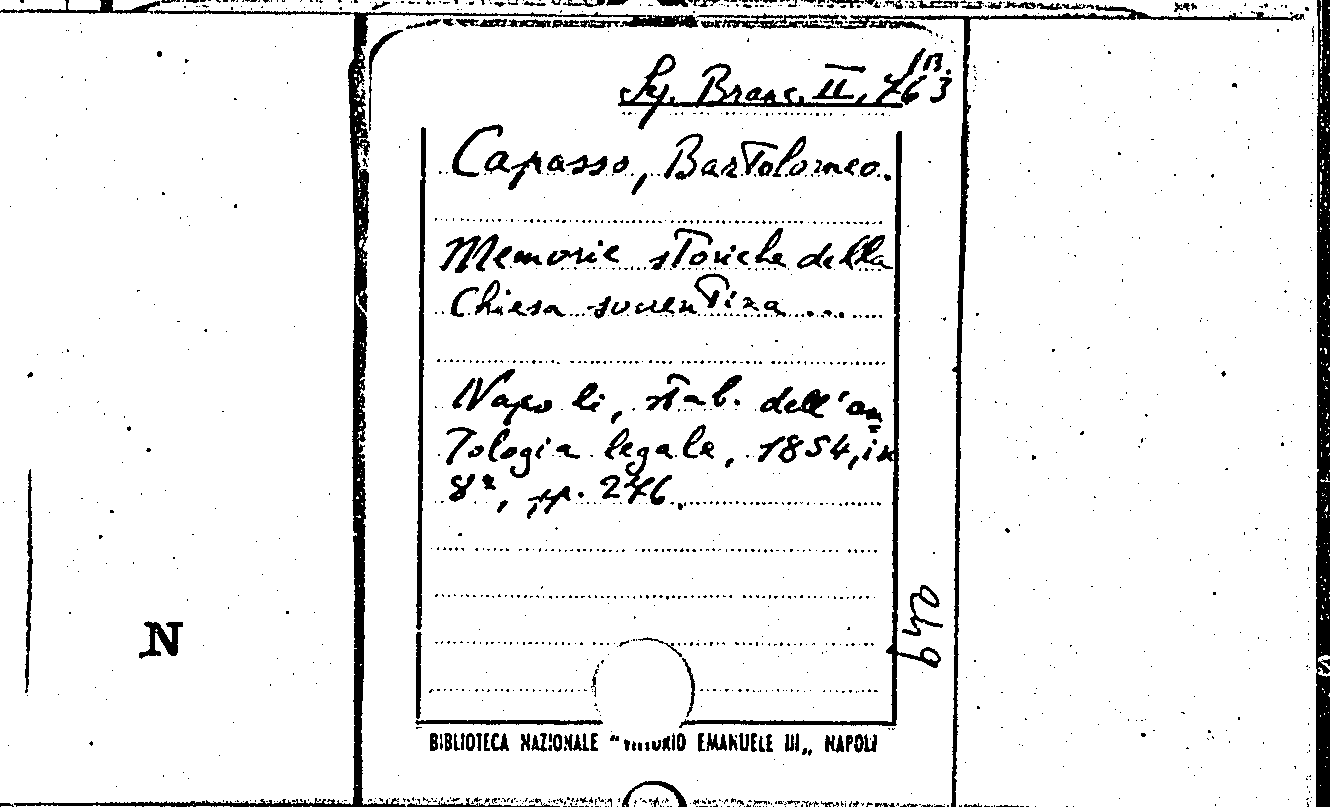 Sg. Branc. II, 763
Capasso, Bartolomeo.
Memorie storiche della
Chiesa sorrentina ...
Napoli, stab. dell'an
tologia legale, 1854, in
8º, pp. 276.
N
BIBLIOTECA NAZIONALE "VITTORIO EMANUELE III„ NAPOLI